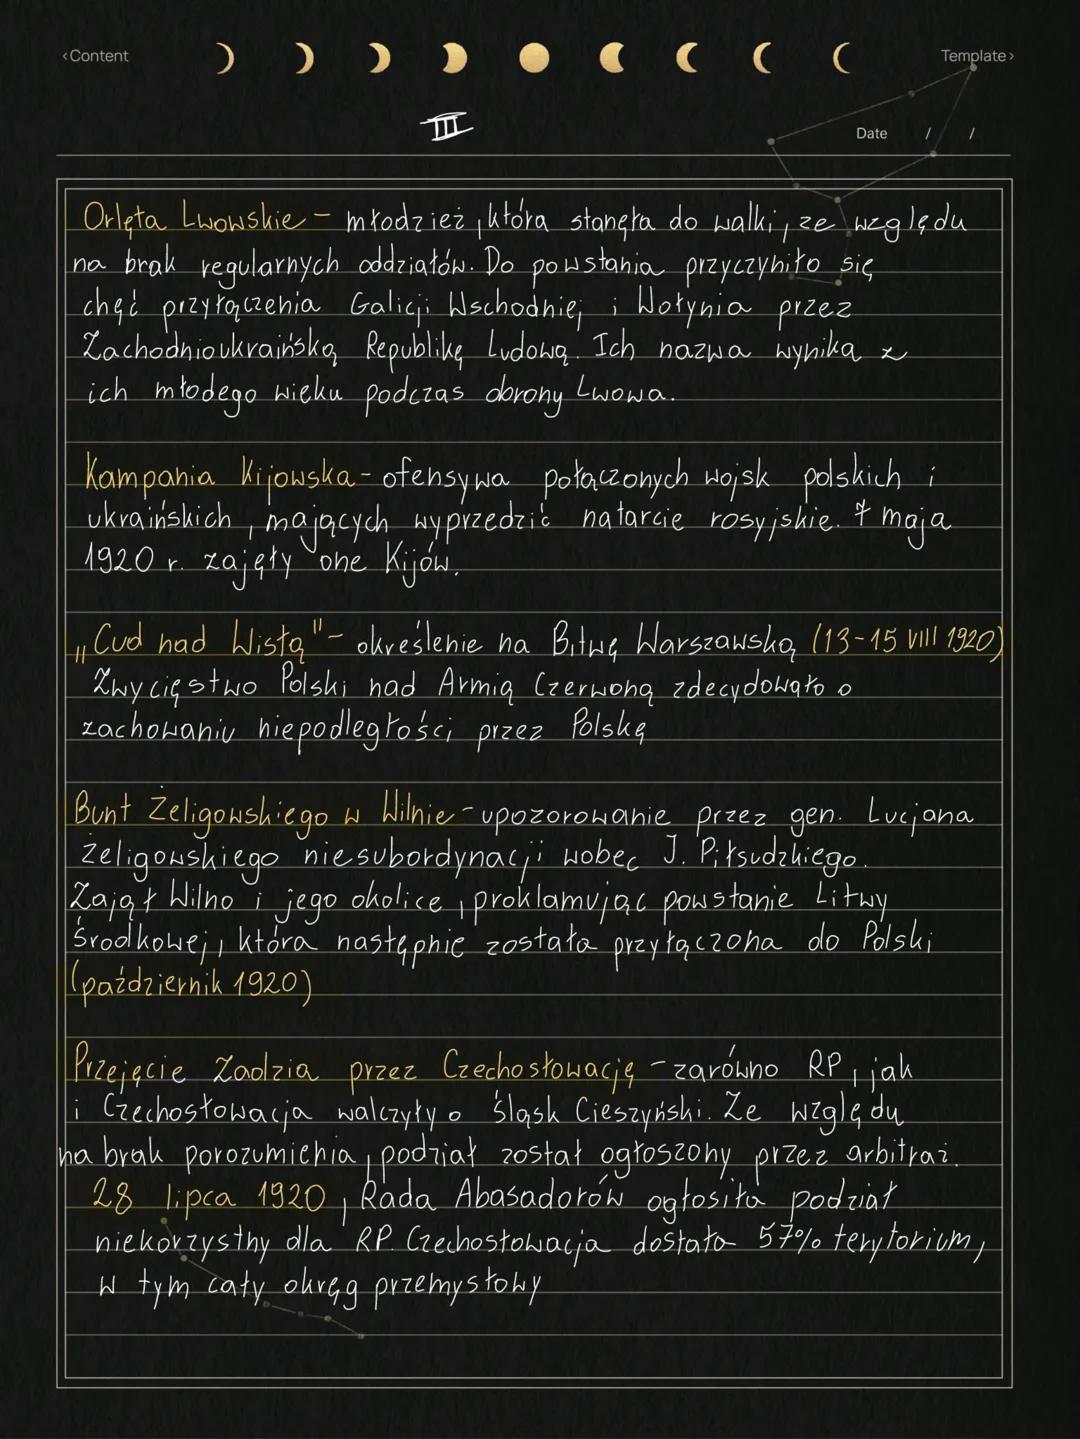 ‹Content
Template›
III
Date / /
Orlęta Lwowskie - młodzież, która stanęła do walki, ze względu
na brak regularnych oddziałów. Do powstania przyczyniło się
chęć przyłączenia Galicji Wschodniej i Wołynia przez
Zachodnioukraińską Republikę Ludową. Ich nazwa wynika z
ich młodego wieku podczas obrony Lwowa.
Kampania Kijowska - ofensywa połączonych wojsk polskich i
ukraińskich, mających wyprzedzić natarcie rosyjskie. 7 maja
1920 r. zajęły one Kijów.
„Cud nad Wisłą" - określenie na Bitwę Warszawską (13-15 VIII 1920)
Zwycięstwo Polski nad Armią Czerwoną zdecydowało o
zachowaniu niepodległości przez Polskę
Bunt Żeligowskiego w Wilnie - upozorowanie przez gen. Lucjana
Żeligowskiego niesubordynacji wobec J. Piłsudzkiego.
Zajął Wilno i jego okolice, proklamując powstanie Litwy
Środkowej, która następnie została przyłączona do Polski
(październik 1920)
Przejęcie Zaolzia przez Czechosłowację - zarówno RP, jak
i Czechosłowacja walczyły o Śląsk Cieszyński. Ze względu
na brak porozumienia, podział został ogłoszony przez arbitraż.
28 lipca 1920, Rada Abasadorów ogłosiła podział
niekorzystny dla RP. Czechosłowacja dostała 57% terytorium,
w tym cały okręg przemysłowy